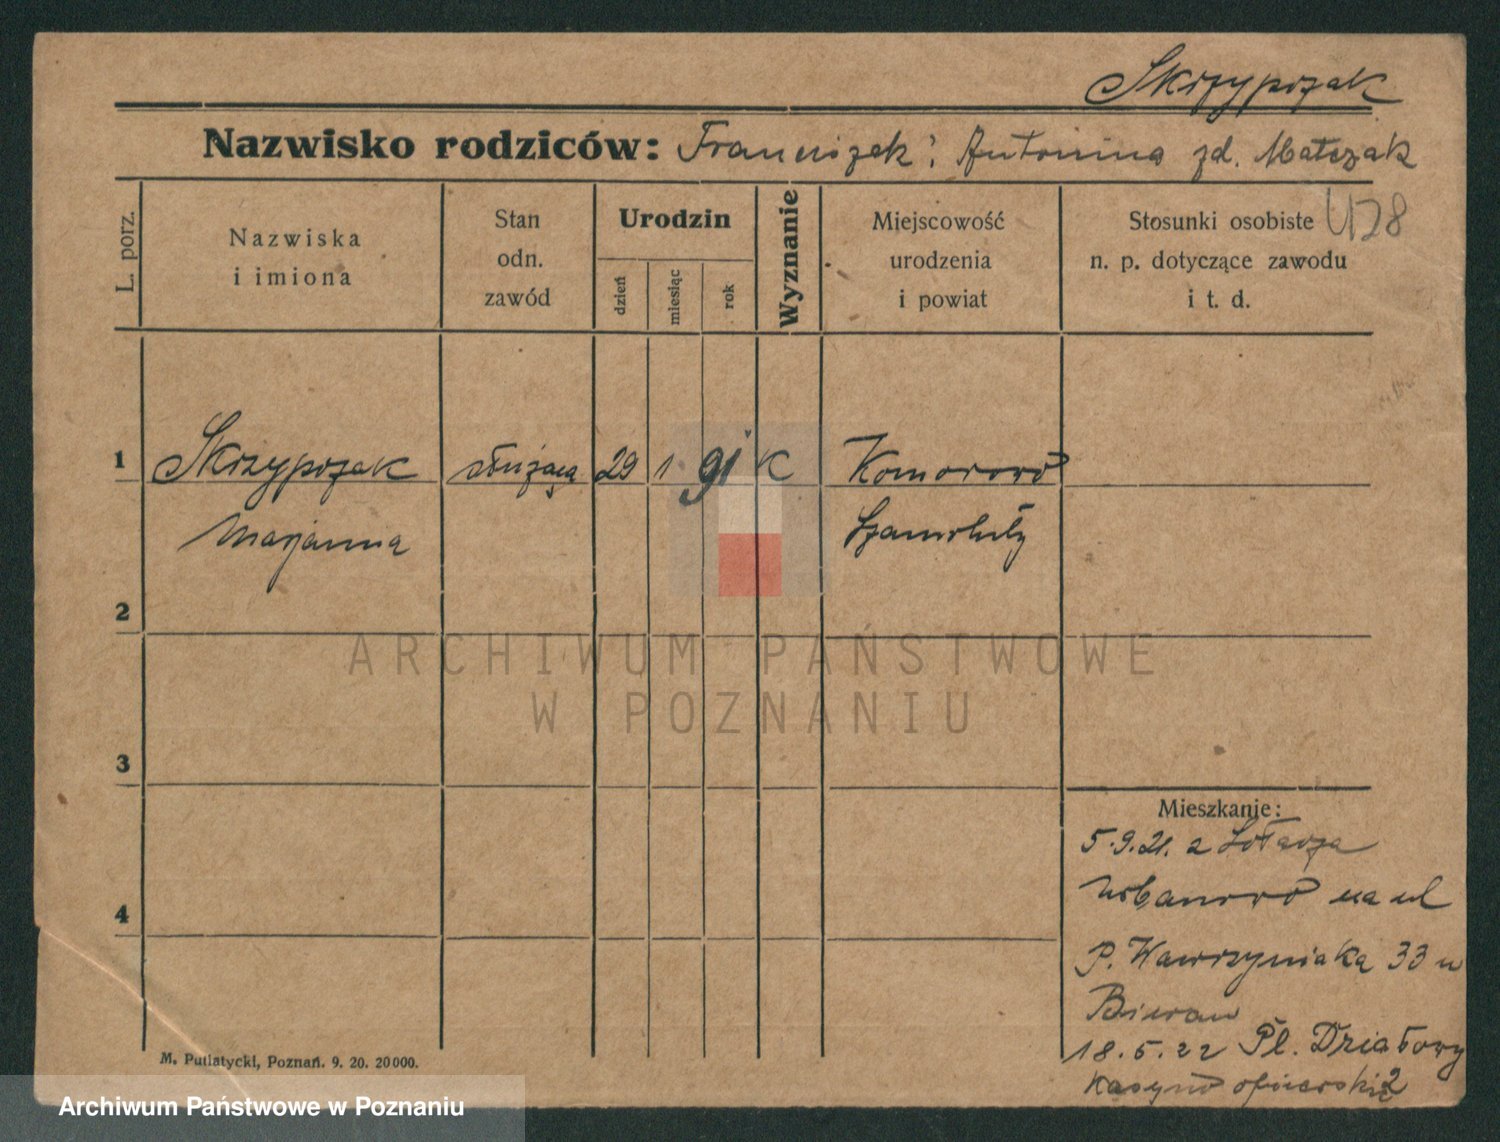 Skrzypczak
Nazwisko rodziców: Franciszek i Antonina zd. Matczak
L. porz.
Nazwiska
i imiona
Stan
odn.
zawód
Urodzin
dzień
miesiąc
rok
Wyznanie
Miejscowość
urodzenia
i powiat
Stosunki osobiste
n. p. dotyczące zawodu
i t. d.
1 Skrzypczak służąca 29 1 91 K Komorowo
Marjanna Szamotuły
2
3
4
Mieszkanie:
5.9.21. z Sołacza
Urbanowo na ul
P. Wawrzyniaka 33 u
18.5.22 Pl. Działowy
Kasyno oficerskie 2
M. Putiatycki, Poznań. 9. 20. 20000.
ARCHIWUM PAŃSTWOWE
W POZNANIU
Archiwum Państwowe w Poznaniu